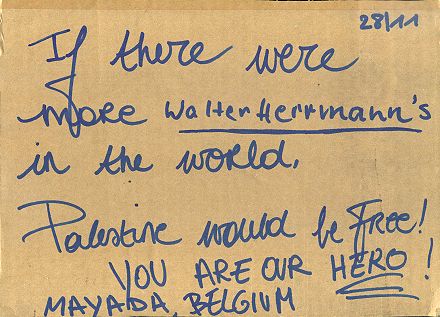 28/11
If there were
more Walter Herrmann's
in the world.
Palestine would be Free!
YOU ARE OUR HERO!
MAYADA, BELGIUM